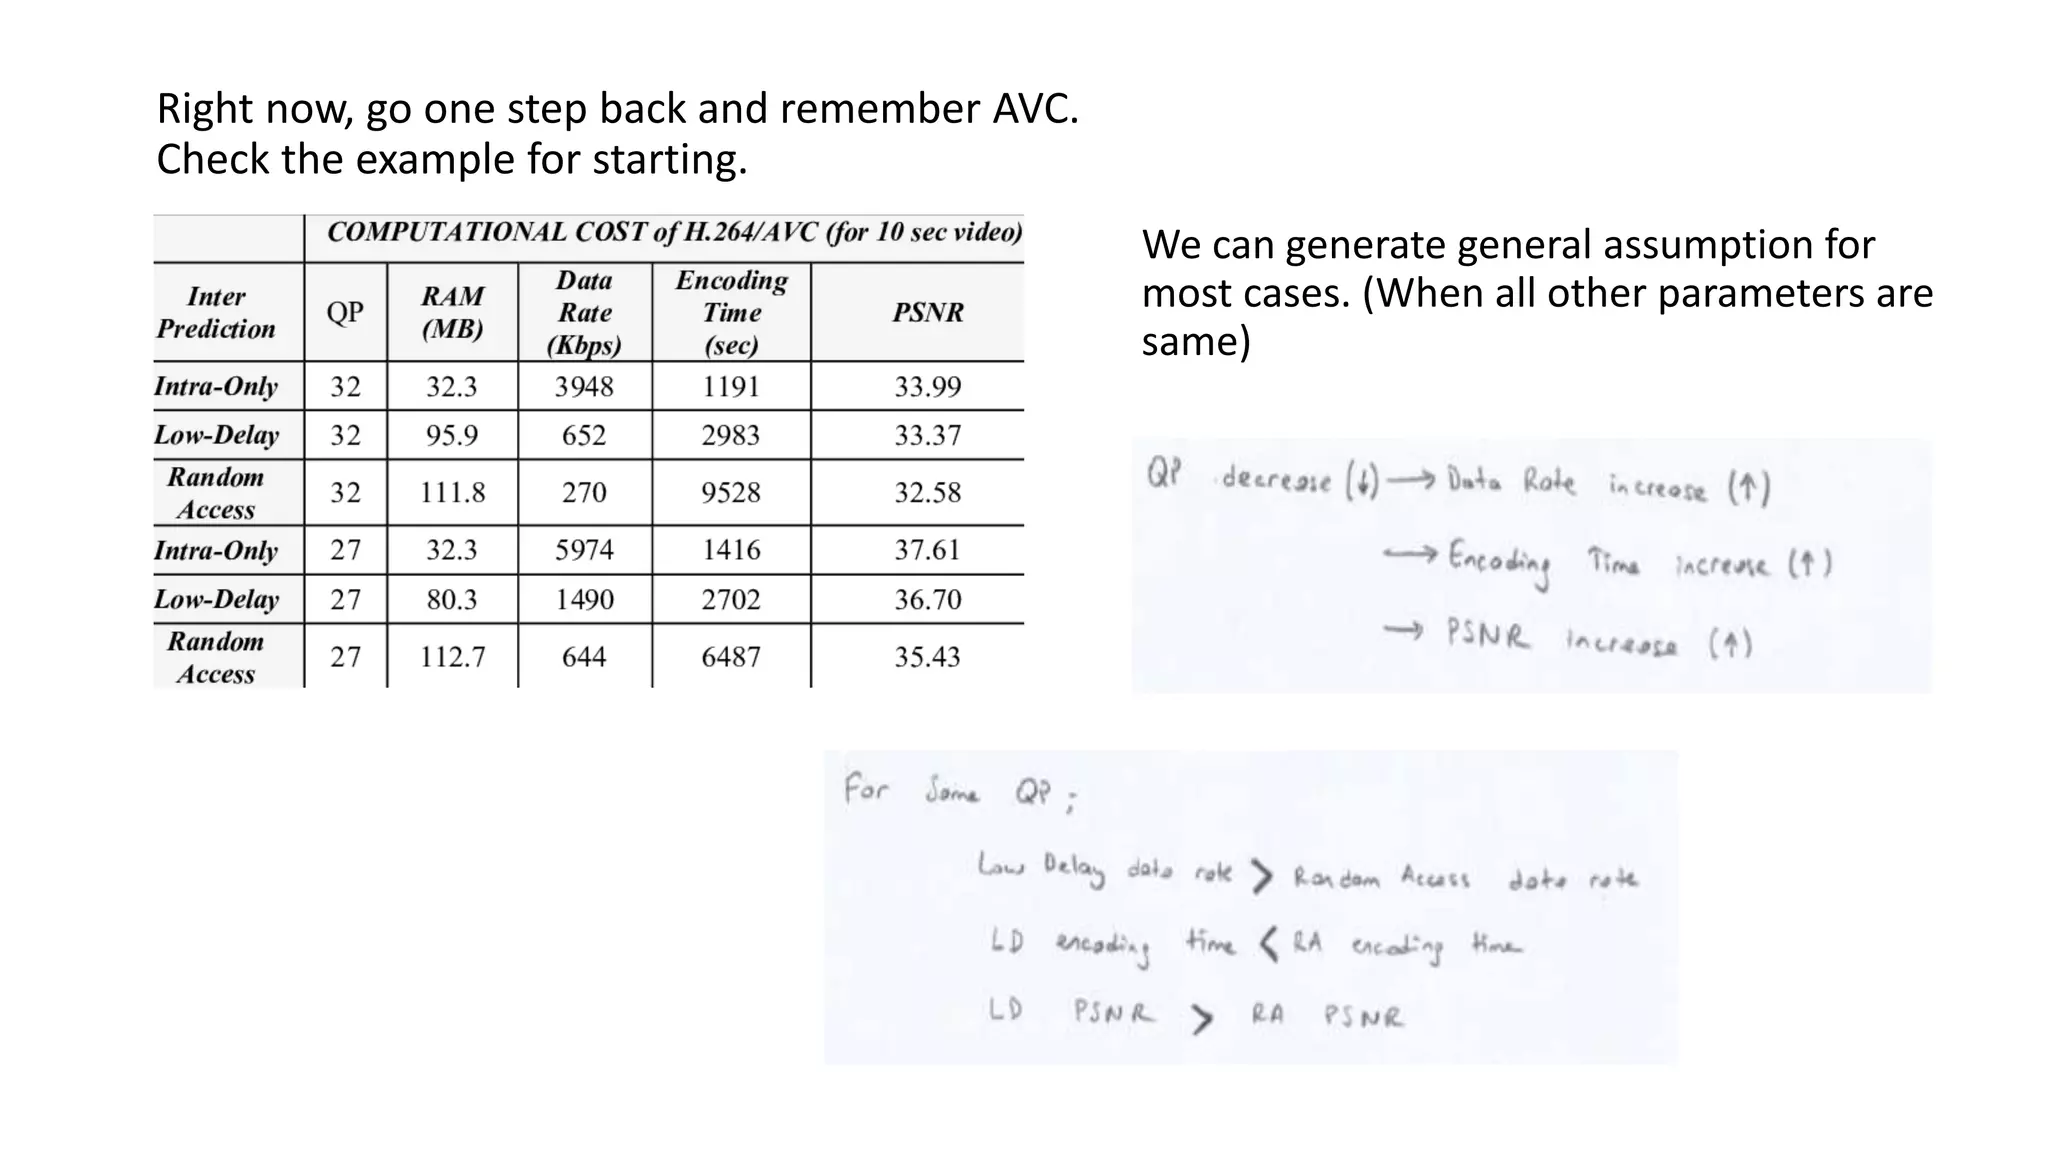 Right now, go one step back and remember AVC.
Check the example for starting.
COMPUTATIONAL COST of H.264/AVC (for 10 sec video)
Inter Prediction QP RAM (MB) Data Rate (Kbps) Encoding Time (sec) PSNR
Intra-Only 32 32.3 3948 1191 33.99
Low-Delay 32 95.9 652 2983 33.37
Random Access 32 111.8 270 9528 32.58
Intra-Only 27 32.3 5974 1416 37.61
Low-Delay 27 80.3 1490 2702 36.70
Random Access 27 112.7 644 6487 35.43
We can generate general assumption for
most cases. (When all other parameters are
same)
QP decrease (↓) → Data Rate increase (↑)
→ Encoding Time increase (↑)
→ PSNR increase (↑)
For Same QP ;
Low Delay data rate > Random Access data rate
LD encoding time < RA encoding time
LD PSNR > RA PSNR